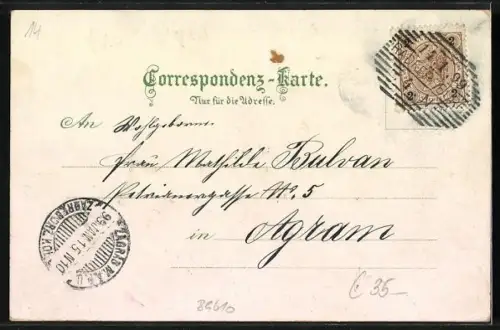 14
Correspondenz-Karte.
Nur für die Adresse.
An Wohlgeboren
Frau Mathilde Bulvan
Petrinergasse No. 5
in Agram
ZAGREB
99 JAN 15
89610
€ 35-